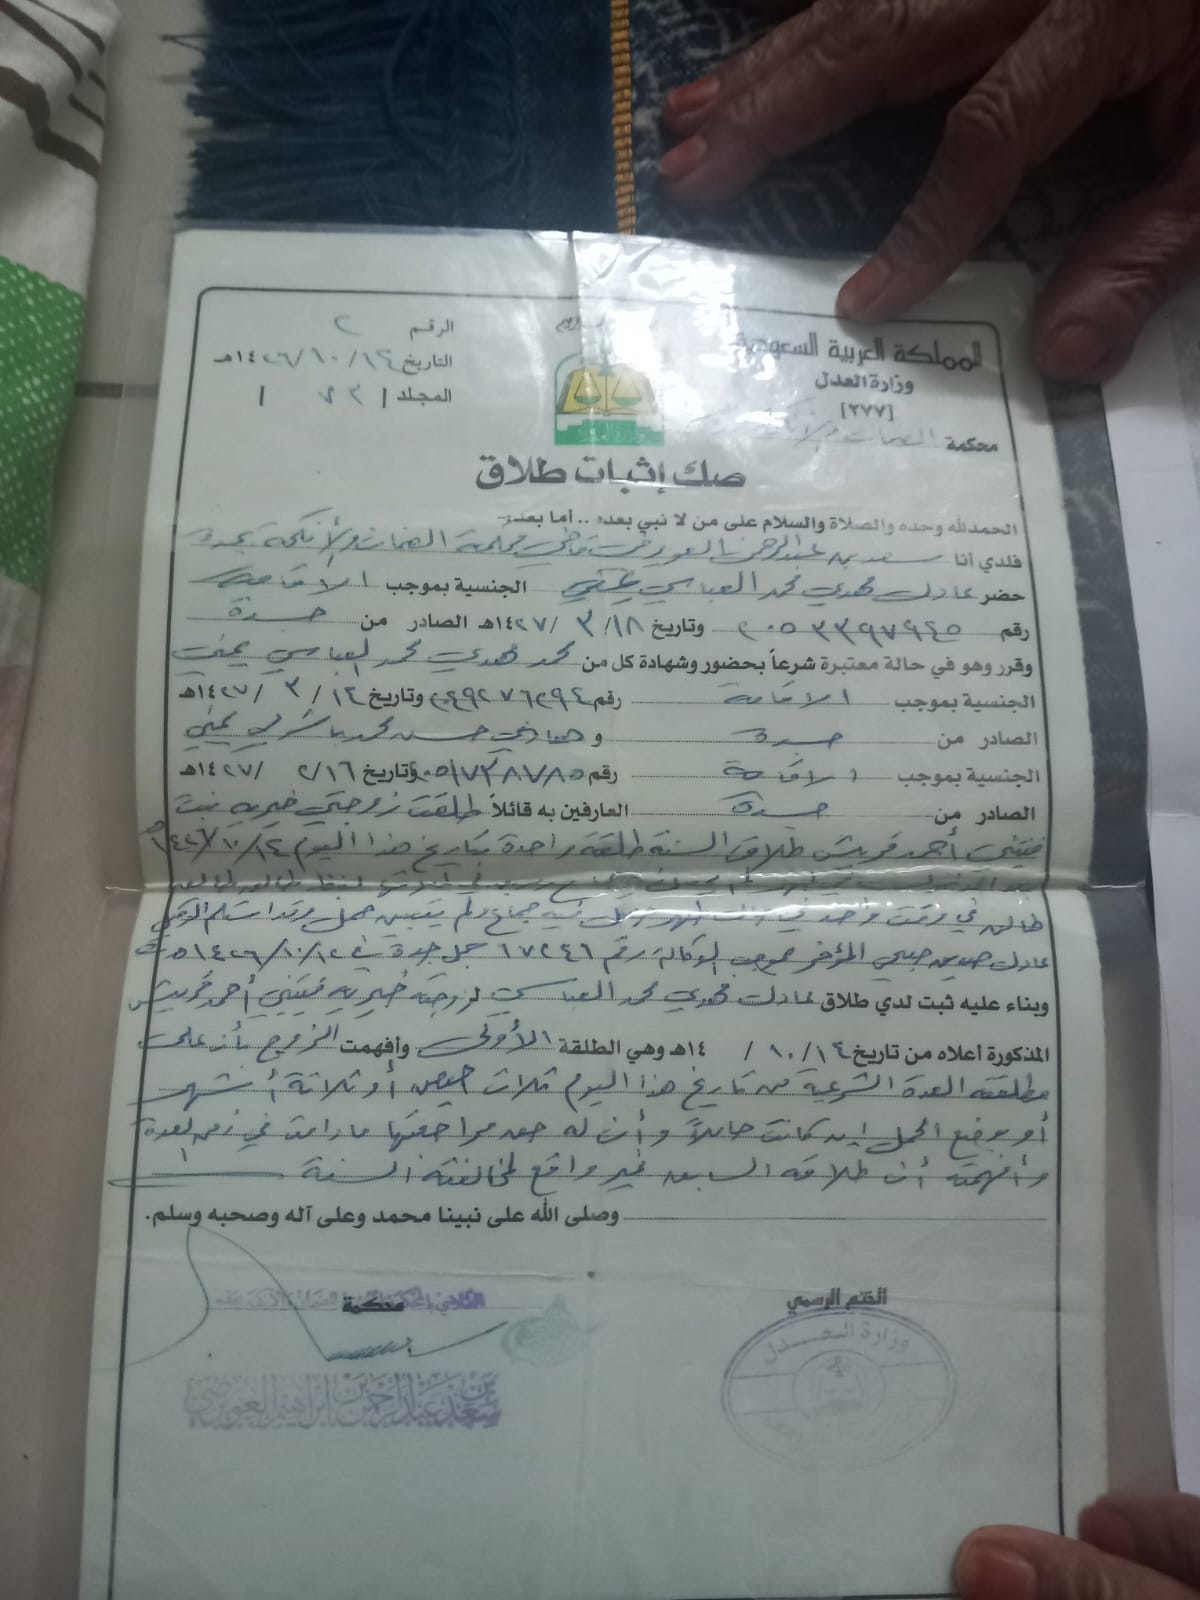 المملكة العربية السعودية
وزارة العدل
[٢٧٧]
محكمة الضمان والأنكحة
الرقم ٢
التاريخ ١٤/١٠/١٤٢٦هـ
المجلد / ٧٣ /
صك إثبات طلاق
الحمدلله وحده والصلاة والسلام على من لا نبي بعده .. أما بعد:-
فلدي أنا سعد بن عبدالرحمن العويرضي قاضي محكمة الضمان والأنكحة بجدة
حضر عادل مهدي محمد العباسي يمني الجنسية بموجب الاقامة
رقم ٢٠٥٣٣٩٧٩٤٥ وتاريخ ١٨/٣/١٤٢٧هـ الصادر من جدة
وقرر وهو في حالة معتبرة شرعاً بحضور وشهادة كل من محمد مهدي محمد العباسي يمني
الجنسية بموجب الاقامة رقم وتاريخ ١٤/٣/١٤٢٧هـ
الصادر من جدة و حسن محمد يمني
الجنسية بموجب الاقامة رقم وتاريخ ١٦/٢/١٤٢٧هـ
الصادر من جدة العارفين به قائلاً طلقت زوجتي خيريه بنت
فتيني أحمد قريش طلاق السنة طلقة واحدة بتاريخ هذا اليوم ١٤/١٠/١٤٢٦هـ
طالق في وقت واحد في جماع ولم يتبين حمل وقد استلم الوكيل
عادل المؤخر بموجب الوكالة رقم ١٧٢٤١ جدة في ١٢/١٠/١٤٢٦هـ
وبناء عليه ثبت لدي طلاق عادل مهدي محمد العباسي لزوجته خيريه فتيني أحمد قريش
المذكورة أعلاه من تاريخ ١٤/١٠/ ١٤هـ وهي الطلقة الأولى وأفهمت الزوج بأن على
مطلقته العدة الشرعية من تاريخ هذا اليوم ثلاث حيض أو ثلاثة أشهر
أو بوضع الحمل إن كانت حاملاً وأن له حق مراجعتها ما دامت في زمن العدة
وأفهمته أن طلاقه السابق غير واقع لمخالفته السنة
وصلى الله على نبينا محمد وعلى آله وصحبه وسلم.
الختم الرسمي
محكمة
وزارة العدل
سعد بن عبدالرحمن بن ابراهيم العويرضي